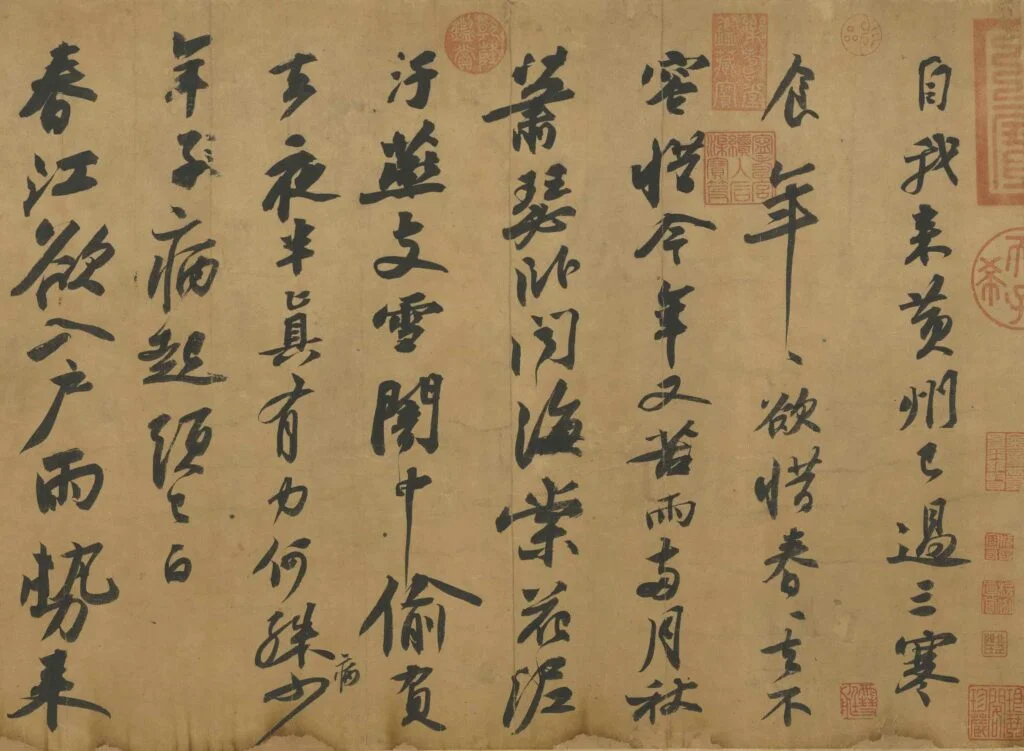 自我来黄州已過三寒
食年〻欲惜春〻去不
容惜今年又苦雨两月秋
蕭瑟卧闻海棠花泥
汙燕支雪闇中偷負
去夜半真有力何殊少病
年子病起須已白
春江欲入户雨勢来